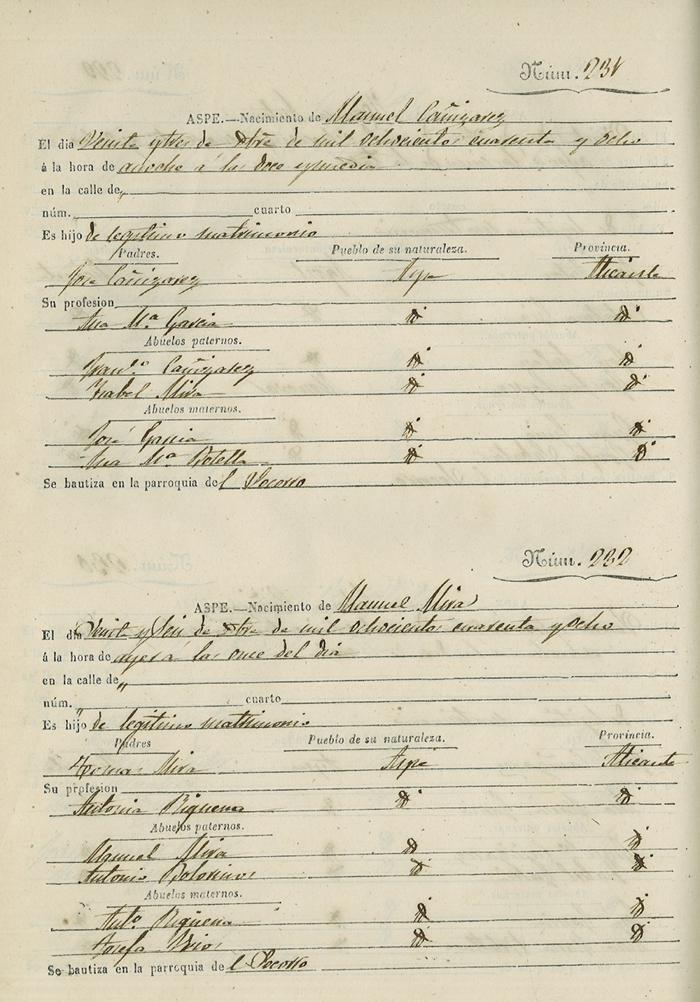 Núm. 231
ASPE.—Nacimiento de Manuel Cañizarez
El dia Veinte y tres de Obre de mil ochocientos cuarenta y ocho
á la hora de anoche á las doce y media
en la calle de "
núm. cuarto
Es hijo de legitimo matrimonio
Padres. Pueblo de su naturaleza. Provincia.
Jose Cañizarez Aspe Alicante
Su profesion
Ana Mª Garcia id id
Abuelos paternos.
Franco Cañizarez id id
Isabel Mira id id
Abuelos maternos.
José Garcia id id
Ana Mª Botella id id
Se bautiza en la parroquia del Socorro
Núm. 232
ASPE.—Nacimiento de Manuel Mira
El dia Veinte y seis de Obre de mil ochocientos cuarenta y ocho
á la hora de ayer á las once del dia
en la calle de "
núm. " cuarto
Es hijo de legitimo matrimonio
Padres Pueblo de su naturaleza. Provincia.
Tomas Mira Aspe Alicante
Su profesion
Antonia id id
Abuelos paternos.
Manuel Mira id id
Antonia id id
Abuelos maternos.
Anto id id
Josefa id id
Se bautiza en la parroquia de l Socorro